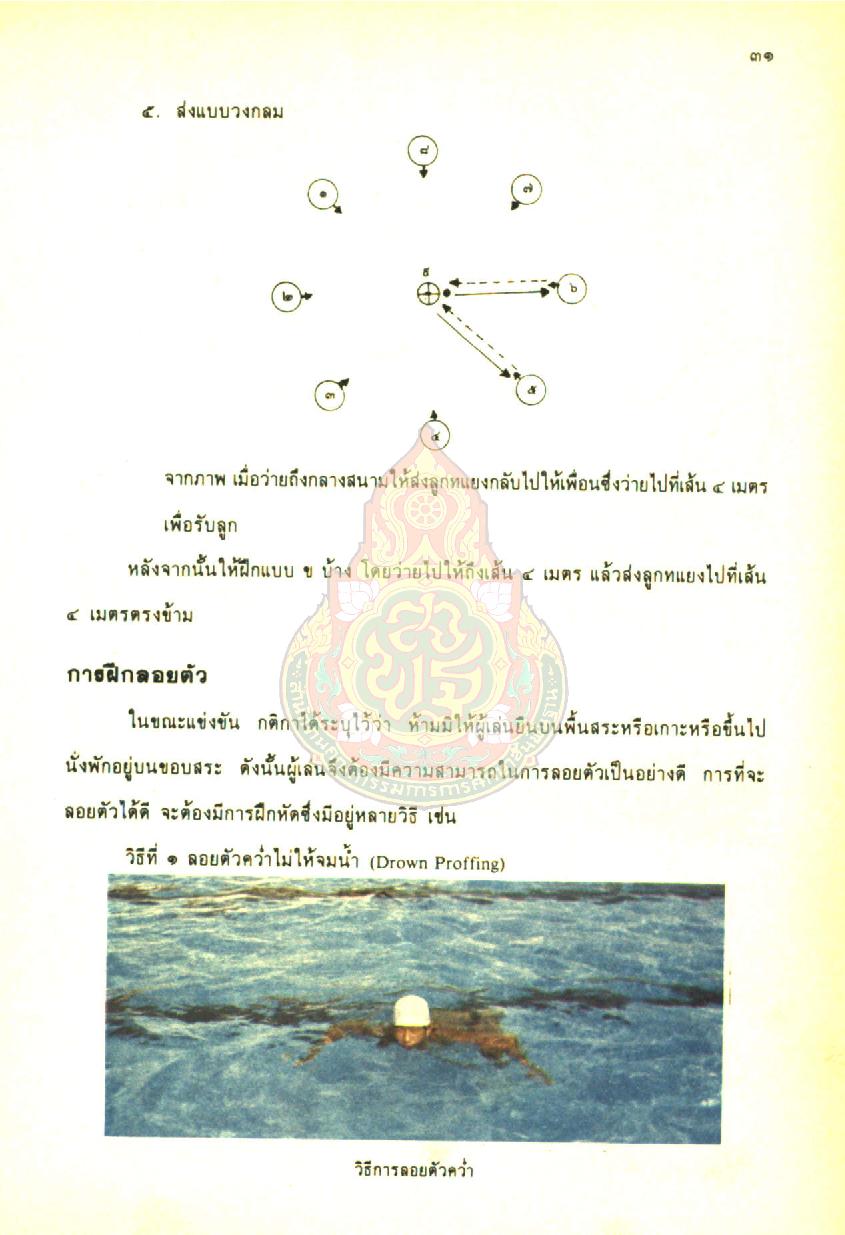 ๓๑
๕. ส่งแบบวงกลม
๘
๑
๗
๙
๒
๖
๓
๕
๔
จากภาพ เมื่อว่ายถึงกลางสนามให้ส่งลูกทแยงกลับไปให้เพื่อนซึ่งว่ายไปที่เส้น ๔ เมตร
เพื่อรับลูก
หลังจากนั้นให้ฝึกแบบ ข บ้าง โดยว่ายไปให้ถึงเส้น ๔ เมตร แล้วส่งลูกทแยงไปที่เส้น
๔ เมตรตรงข้าม
การฝึกลอยตัว
ในขณะแข่งขัน กติกาได้ระบุไว้ว่า ห้ามมิให้ผู้เล่นยืนบนพื้นสระหรือเกาะหรือขึ้นไป
นั่งพักอยู่บนขอบสระ ดังนั้นผู้เล่นจึงต้องมีความสามารถในการลอยตัวเป็นอย่างดี การที่จะ
ลอยตัวได้ดี จะต้องมีการฝึกหัดซึ่งมีอยู่หลายวิธี เช่น
วิธีที่ ๑ ลอยตัวคว่ำไม่ให้จมน้ำ (Drown Proffing)
วิธีการลอยตัวคว่ำ